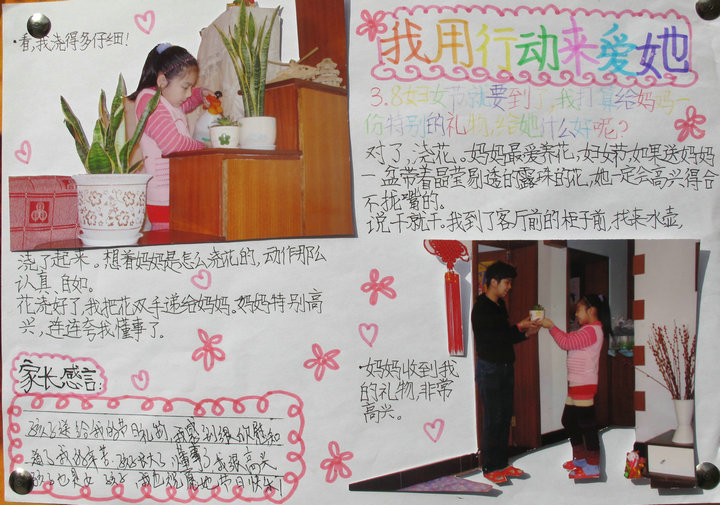 我用行动来爱她
·看,我浇得多仔细!
3.8妇女节就要到了,我打算给妈妈一
份特别的礼物,给她什么好呢?
对了,浇花。妈妈最爱养花,妇女节,如果送妈妈
一盆带着晶莹易透的露珠的花,她一定会高兴得合
不拢嘴的。
说干就干。我到了客厅前的柜子前,找来水壶,
浇了起来。想着妈妈是怎么浇花的,动作那么
认真自如。
花浇好了,我把花双手递给妈妈。妈妈特别高
兴,连连夸我懂事了。
·妈妈收到我
的礼物,非常
高兴。
家长感言:
送给我的节日礼物,我感到很欣慰和
大了懂事了我很高兴
节日快乐